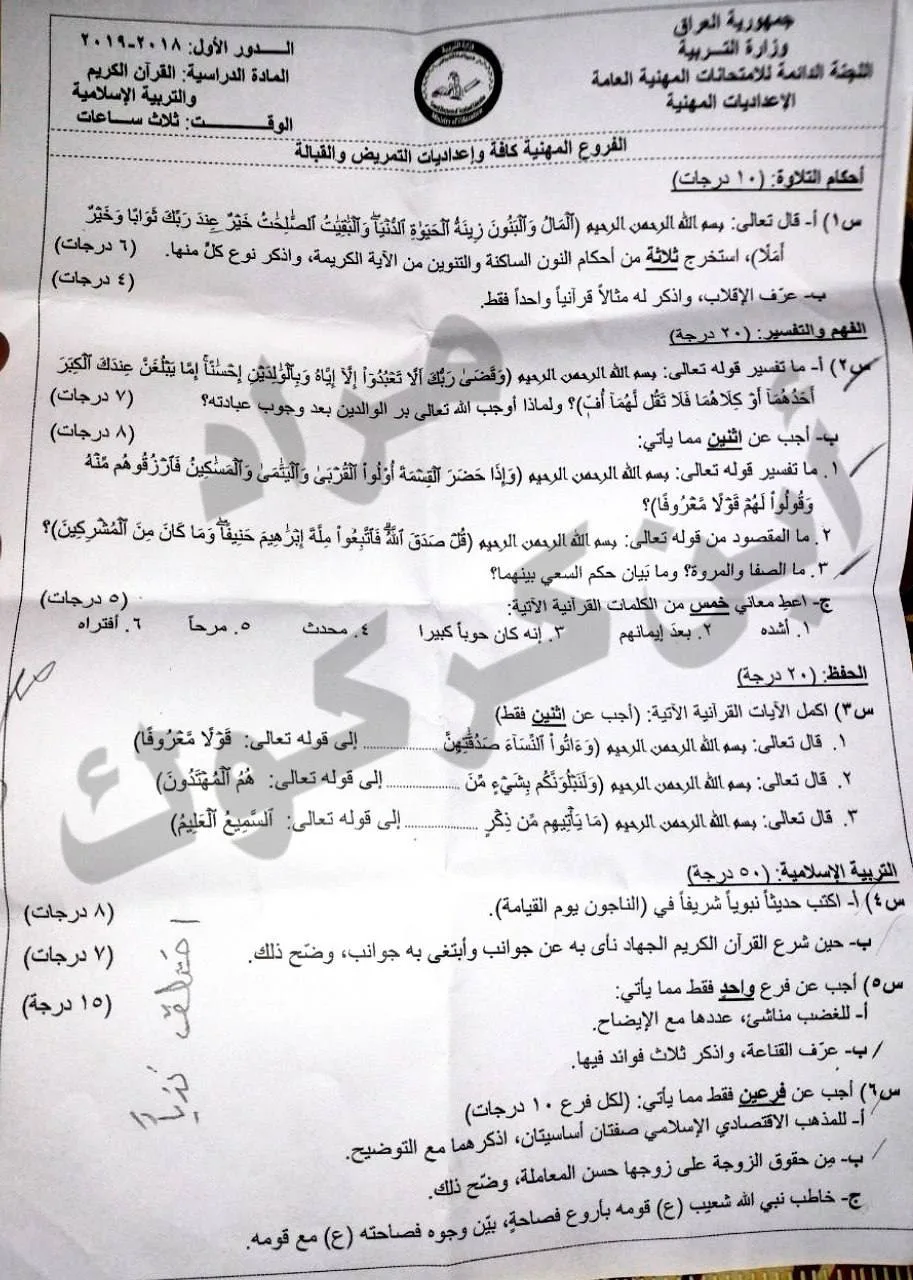 جمهورية العراق
وزارة التربية
اللجنة الدائمة للامتحانات المهنية العامة
الإعداديات المهنية
الدور الأول: ٢٠١٨-٢٠١٩
المادة الدراسية: القرآن الكريم
والتربية الإسلامية
الوقت: ثلاث ساعات
Ministry of Education
الفروع المهنية كافة وإعداديات التمريض والقبالة
أحكام التلاوة: (١٠ درجات)
س١) أ- قال تعالى: بسم الله الرحمن الرحيم (ٱلۡمَالُ وَٱلۡبَنُونَ زِينَةُ ٱلۡحَيَوٰةِ ٱلدُّنۡيَاۖ وَٱلۡبَٰقِيَٰتُ ٱلصَّٰلِحَٰتُ خَيۡرٌ عِندَ رَبِّكَ ثَوَابٗا وَخَيۡرٌ
أَمَلٗا)، استخرج ثلاثة من أحكام النون الساكنة والتنوين من الآية الكريمة، واذكر نوع كلٍّ منها. (٦ درجات)
ب- عرّف الإقلاب، واذكر له مثالاً قرآنياً واحداً فقط. (٤ درجات)
الفهم والتفسير: (٢٠ درجة)
س٢) أ- ما تفسير قوله تعالى: بسم الله الرحمن الرحيم (وَقَضَىٰ رَبُّكَ أَلَّا تَعۡبُدُوٓاْ إِلَّآ إِيَّاهُ وَبِٱلۡوَٰلِدَيۡنِ إِحۡسَٰنًاۚ إِمَّا يَبۡلُغَنَّ عِندَكَ ٱلۡكِبَرَ
أَحَدُهُمَآ أَوۡ كِلَاهُمَا فَلَا تَقُل لَّهُمَآ أُفّٖ)؟ ولماذا أوجب الله تعالى بر الوالدين بعد وجوب عبادته؟ (٧ درجات)
ب- أجب عن اثنين مما يأتي: (٨ درجات)
١. ما تفسير قوله تعالى: بسم الله الرحمن الرحيم (وَإِذَا حَضَرَ ٱلۡقِسۡمَةَ أُوْلُواْ ٱلۡقُرۡبَىٰ وَٱلۡيَتَٰمَىٰ وَٱلۡمَسَٰكِينُ فَٱرۡزُقُوهُم مِّنۡهُ
وَقُولُواْ لَهُمۡ قَوۡلٗا مَّعۡرُوفٗا)؟
٢. ما المقصود من قوله تعالى: بسم الله الرحمن الرحيم (قُلۡ صَدَقَ ٱللَّهُۗ فَٱتَّبِعُواْ مِلَّةَ إِبۡرَٰهِيمَ حَنِيفٗاۖ وَمَا كَانَ مِنَ ٱلۡمُشۡرِكِينَ)؟
٣. ما الصفا والمروة؟ وما بَيان حكم السعي بينهما؟
ج- اعطِ معاني خمس من الكلمات القرآنية الآتية: (٥ درجات)
١. أشده ٢. بعدَ إيمانهم ٣. إنه كان حوباً كبيرا ٤. محدث ٥. مرحاً ٦. أفتراه
الحفظ: (٢٠ درجة)
س٣) اكمل الآيات القرآنية الآتية: (أجب عن اثنين فقط)
١. قال تعالى: بسم الله الرحمن الرحيم (وَءَاتُواْ ٱلنِّسَآءَ صَدُقَٰتِهِنَّ .......... إلى قوله تعالى: قَوۡلٗا مَّعۡرُوفٗا)
٢. قال تعالى: بسم الله الرحمن الرحيم (وَلَنَبۡلُوَنَّكُم بِشَيۡءٖ مِّنَ .......... إلى قوله تعالى: هُمُ ٱلۡمُهۡتَدُونَ)
٣. قال تعالى: بسم الله الرحمن الرحيم (مَا يَأۡتِيهِم مِّن ذِكۡرٖ .......... إلى قوله تعالى: ٱلسَّمِيعُ ٱلۡعَلِيمُ)
التربية الإسلامية: (٥٠ درجة)
س٤) أ- اكتب حديثاً نبوياً شريفاً في (الناجون يوم القيامة). (٨ درجات)
ب- حين شرع القرآن الكريم الجهاد نأى به عن جوانب وأبتغى به جوانب، وضّح ذلك. (٧ درجات)
س٥) أجب عن فرع واحدٍ فقط مما يأتي: (١٥ درجة)
أ- للغضب مناشئ، عددها مع الإيضاح.
ب- عرّف القناعة، واذكر ثلاث فوائد فيها.
س٦) أجب عن فرعين فقط مما يأتي: (لكل فرع ١٠ درجات)
أ- للمذهب الاقتصادي الإسلامي صفتان أساسيتان، اذكرهما مع التوضيح.
ب- مِن حقوق الزوجة على زوجها حسن المعاملة، وضّح ذلك.
ج- خاطب نبي الله شعيب (ع) قومه بأروع فصاحةٍ، بيّن وجوه فصاحته (ع) مع قومه.
مراد
أبن كركوك